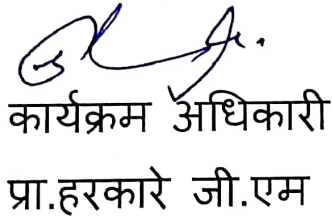 कार्यक्रम अधिकारी
प्रा.हरकारे जी.एम